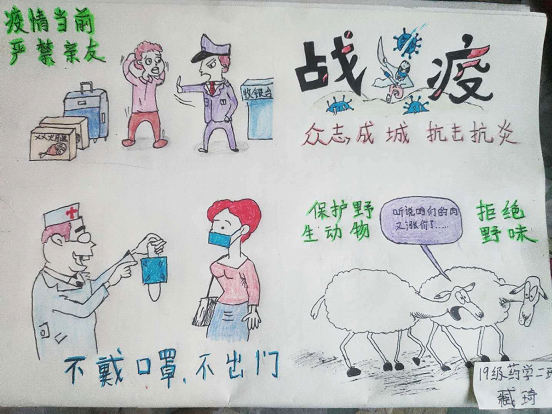 疫情当前
严禁亲友
战疫
众志成城 抗击抗炎
不戴口罩,不出门
保护野
生动物
听说咱们的肉
又涨价了……
拒绝
野味
19级药学二班
臧琦